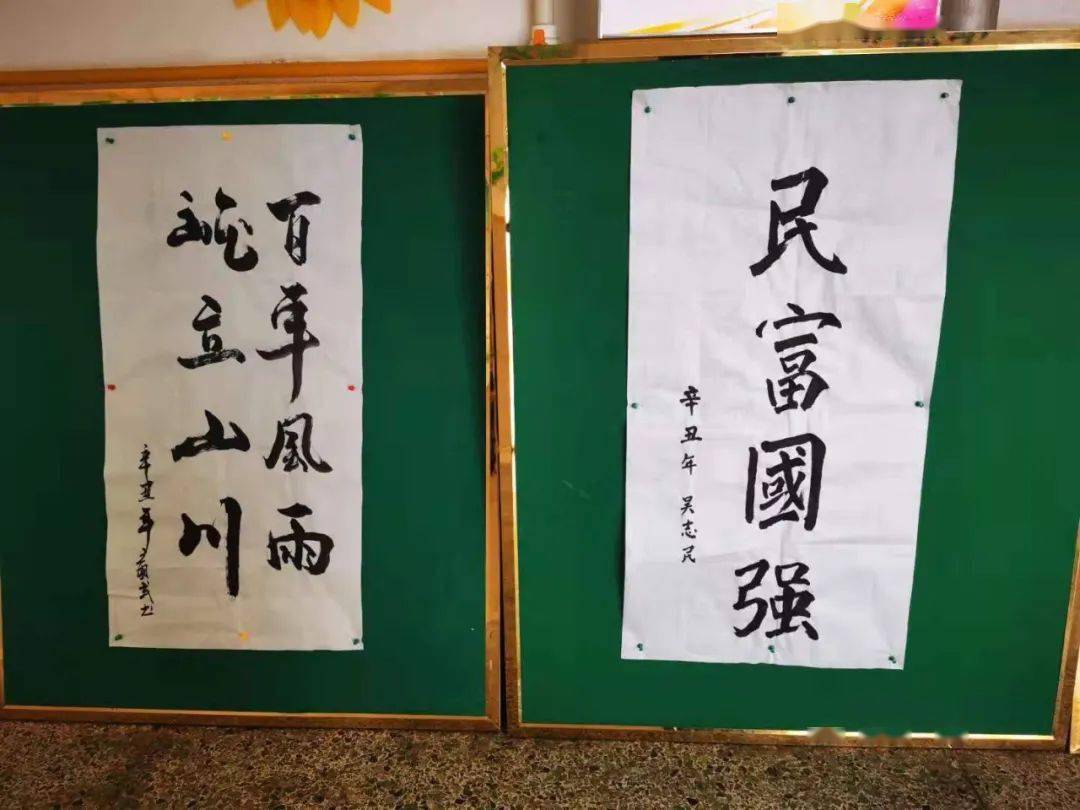 百年風雨
屹立山川
辛丑年
民富國强
辛丑年 吴志民